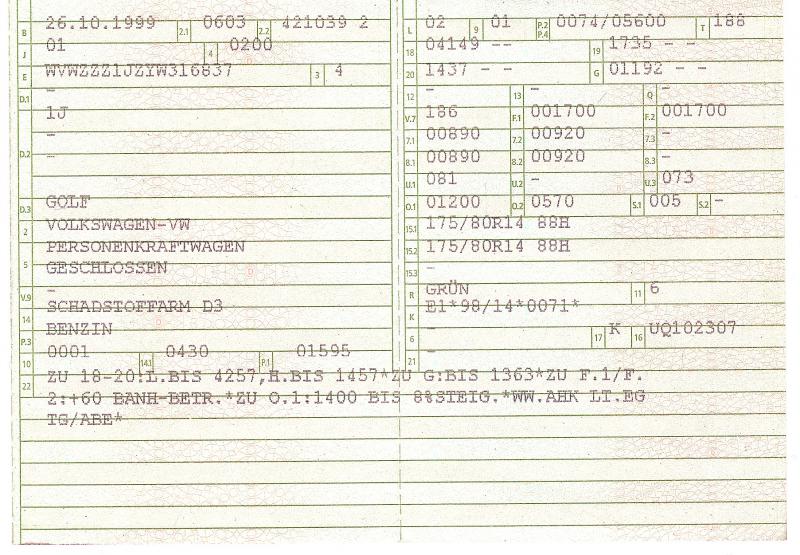 B 26.10.1999 2.1 0603 2.2 421039 2
J 01 4 0200
E WVWZZZ1JZYW316837 3 4
D.1 -
1J
-
D.2 -
D.3 GOLF
2 VOLKSWAGEN-VW
PERSONENKRAFTWAGEN
5 GESCHLOSSEN
V.9 -
SCHADSTOFFARM D3
14
P.3 BENZIN
10 0001 14.1 0430 P.1 01595
L 02 9 01 P.2 P.4 0074/05600 T 188
18 04149 -- 19 1735 - -
20 1437 - - G 01192 - -
12 - 13 - Q -
V.7 186 F.1 001700 F.2 001700
7.1 00890 7.2 00920 7.3 -
8.1 00890 8.2 00920 8.3 -
U.1 081 U.2 - U.3 073
O.1 01200 O.2 0570 S.1 005 S.2 -
15.1 175/80R14 88H
15.2 175/80R14 88H
15.3 -
R GRÜN 11 6
K E1*98/14*0071*
6 - 17 K 16 UQ102307
21 -
22 ZU 18-20:L.BIS 4257,H.BIS 1457*ZU G:BIS 1363*ZU F.1/F.
2:+60 BANH-BETR.*ZU O.1:1400 BIS 8%STEIG.*WW.AHK LT.EG
TG/ABE*